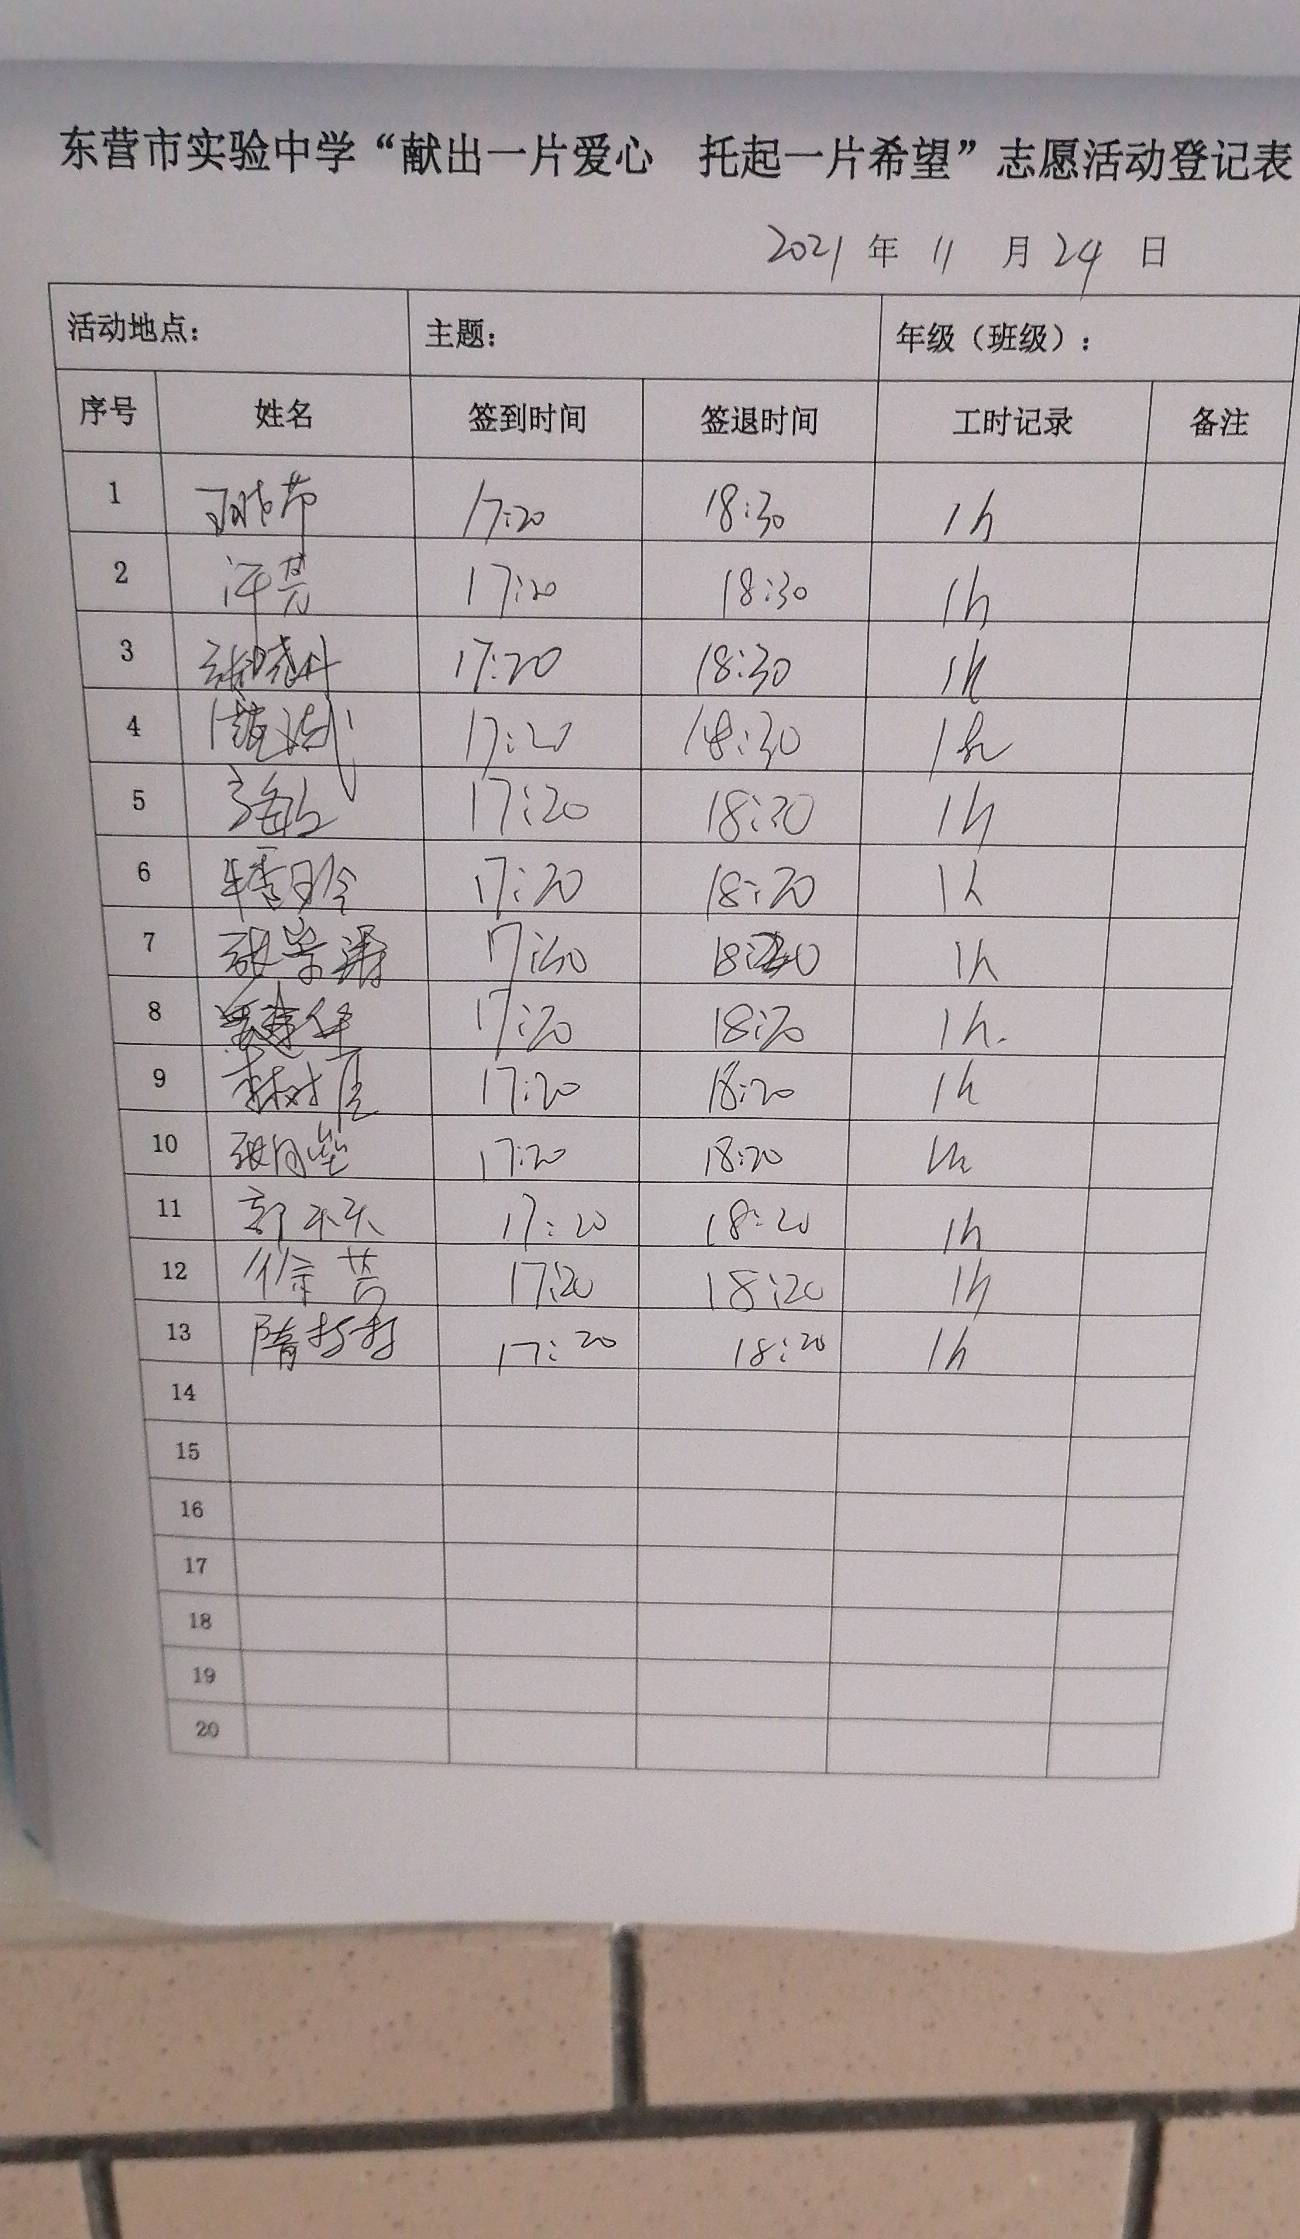 东营市实验中学“献出一片爱心 托起一片希望”志愿活动登记表
2021 年 11 月 24 日
活动地点： 主题： 年级（班级）：
序号 姓名 签到时间 签退时间 工时记录 备注
1 17:20 18:30 1h
2 17:20 18:30 1h
3 张晓丹 17:20 18:30 1h
4 17:20 18:30 1h
5 17:20 18:30 1h
6 17:20 18:20 1h
7 17:20 1h
8 17:20 18:20 1h.
9 17:20 18:20 1h
10 17:20 18:20 1h
11 17:20 18:20 1h
12 徐芸 17:20 18:20 1h
13 隋哲哲 17:20 18:20 1h
14
15
16
17
18
19
20